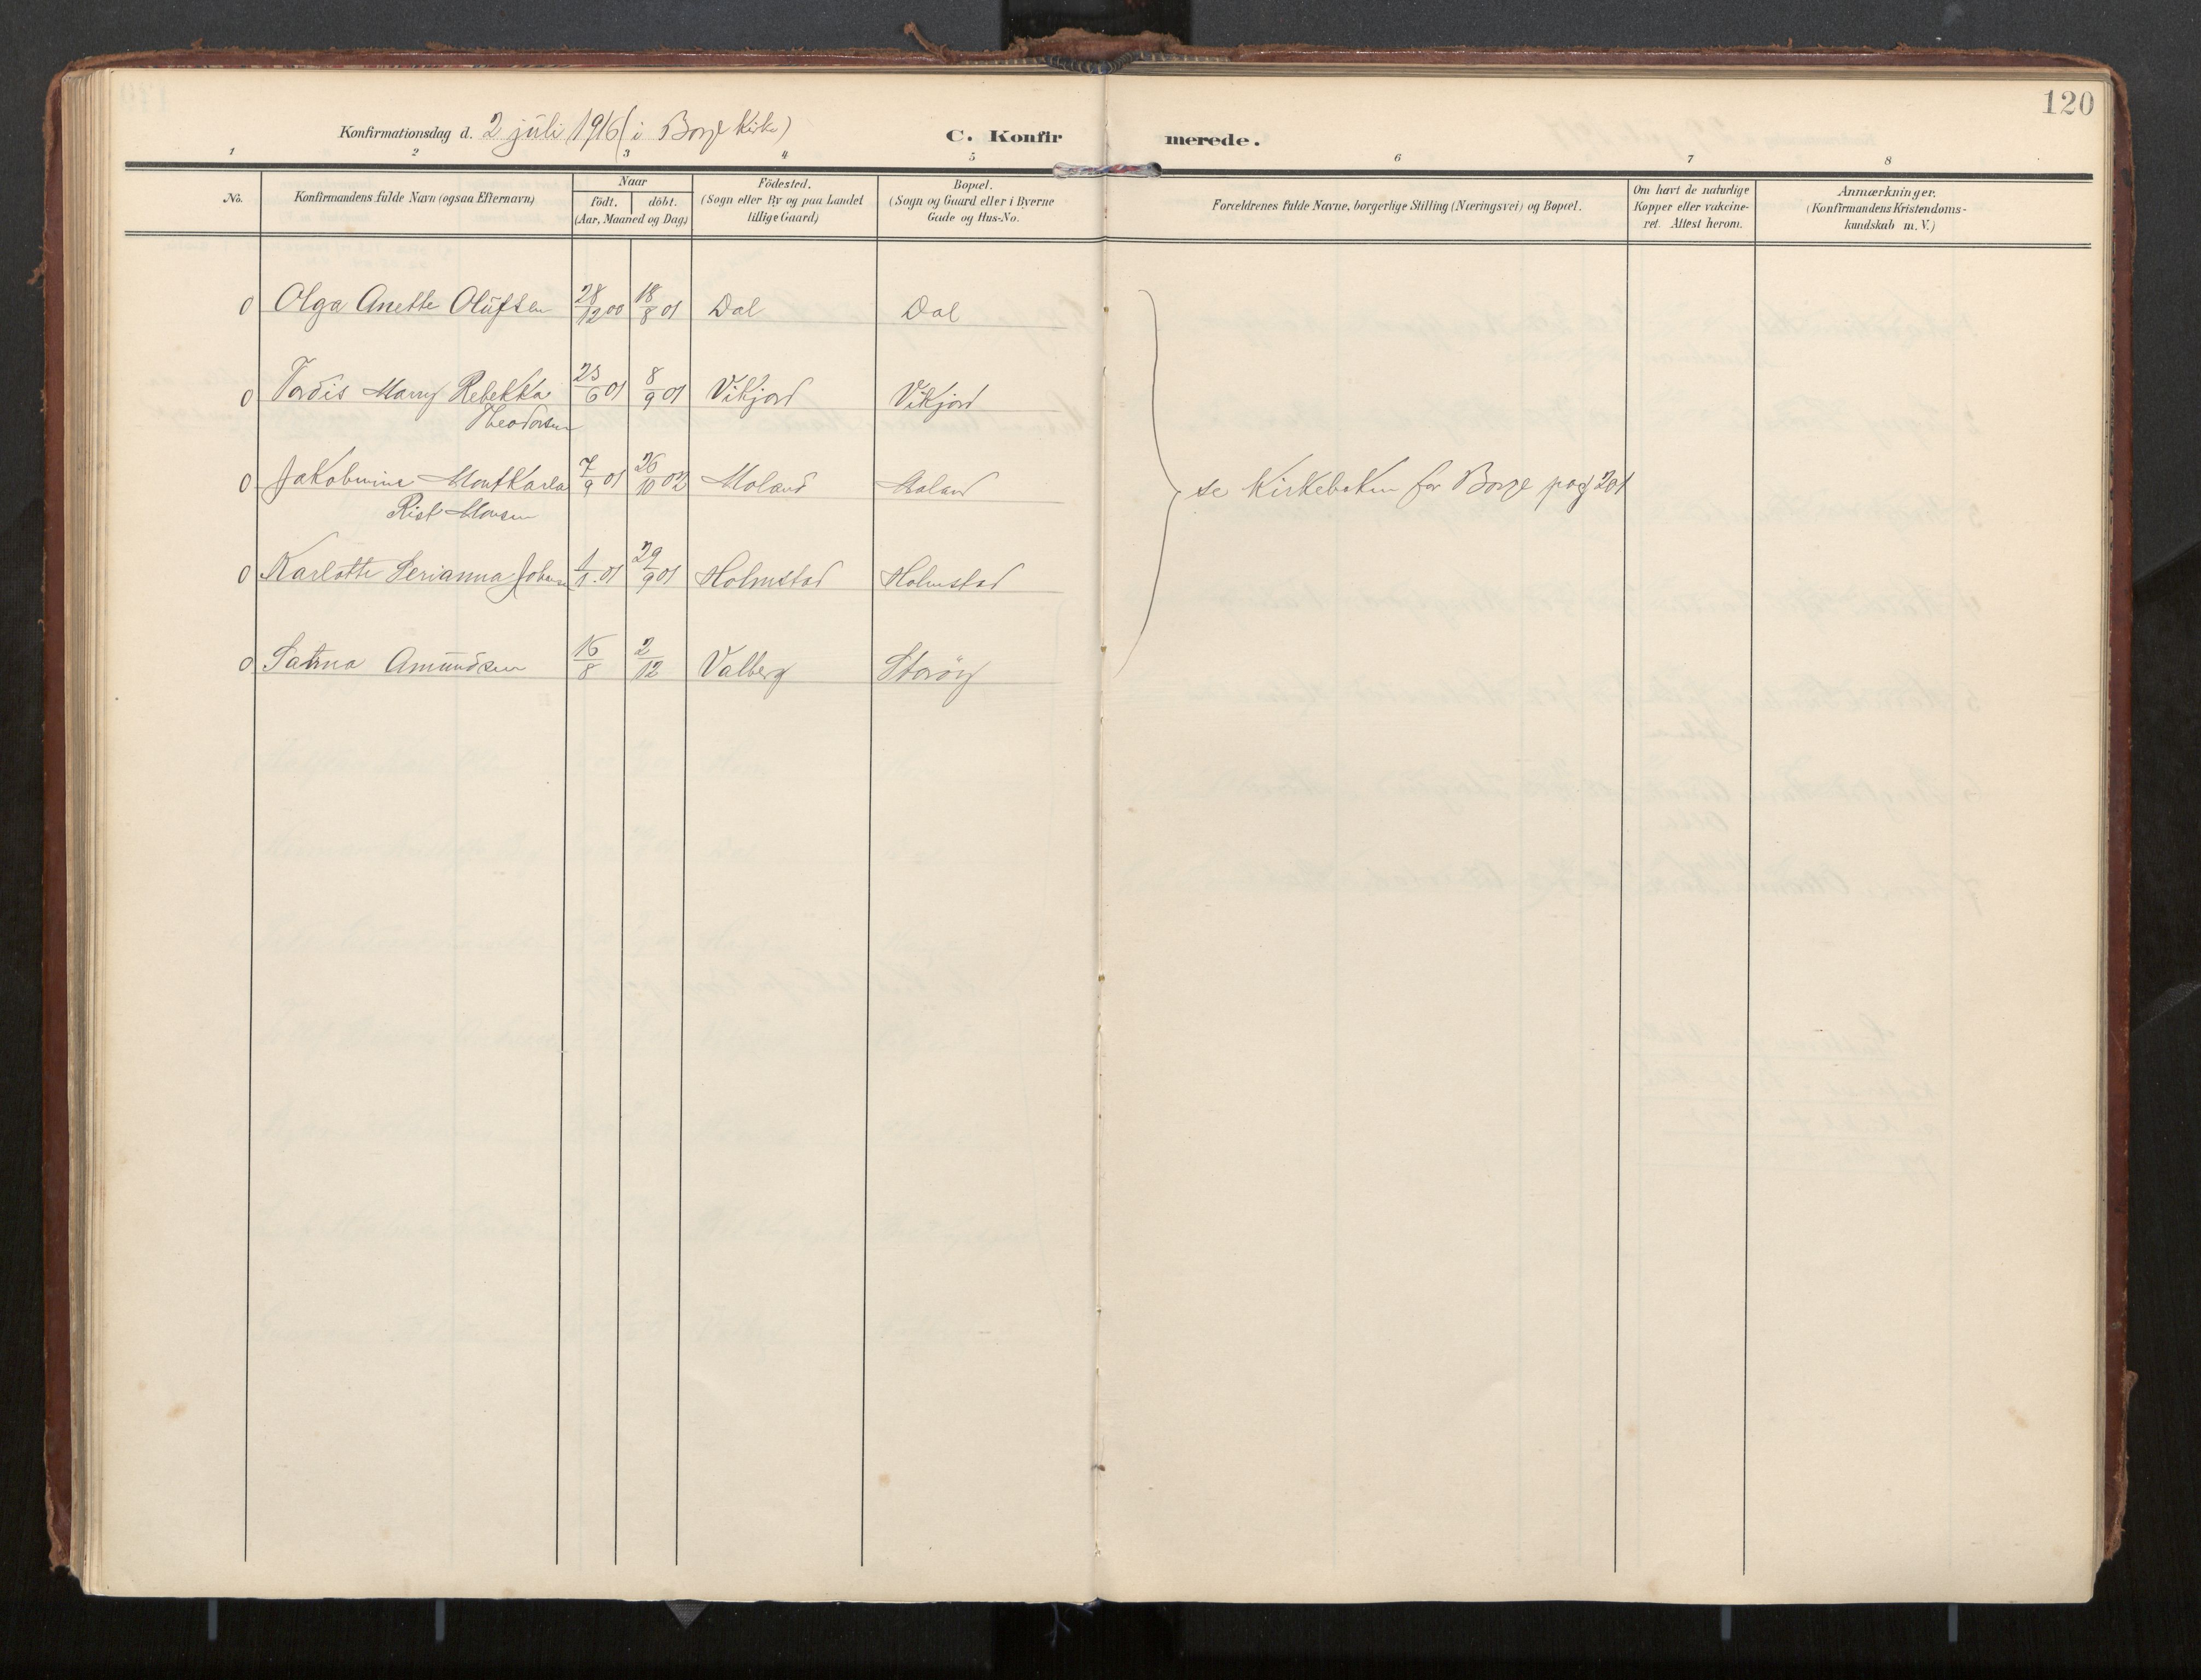 120
Konfirmationsdag d. 2 juli 1916 (i Borge Kirke)
C. Konfirmerede.
1 2 3 4 5 6 7 8
No.
Konfirmandens fulde Navn (ogsaa Efternavn)
Naar
födt. döbt.
(Aar, Maaned og Dag)
Födested.
(Sogn eller By og paa Landet
tillige Gaard)
Bopæl.
(Sogn og Gaard eller i Byerne
Gade og Hus-No.
Forældrenes fulde Navne, borgerlige Stilling (Næringsvei) og Bopæl.
Om havt de naturlige
Kopper eller vakcine-
ret. Attest herom.
Anmærkninger.
(Konfirmandens Kristendoms-
kundskab m. V.)
0 Olga Anette Olufsen 28/12 00 18/8 01 Dal Dal
0 Tordis Marry Rebekka 23/6 01 8/9 01 Vikjord Vikjord
Theodorsen
0 Jakobmine 7/9 01 26/10 02 Moland Moland
Rist Monsen
se Kirkeboken for Borge pag 201
0 Karlotte Serianna Johansen 1/1. 01 29/9 01 Holmstad Holmstad
0 Amundsen 16/8 2/12 Valberg Storöy